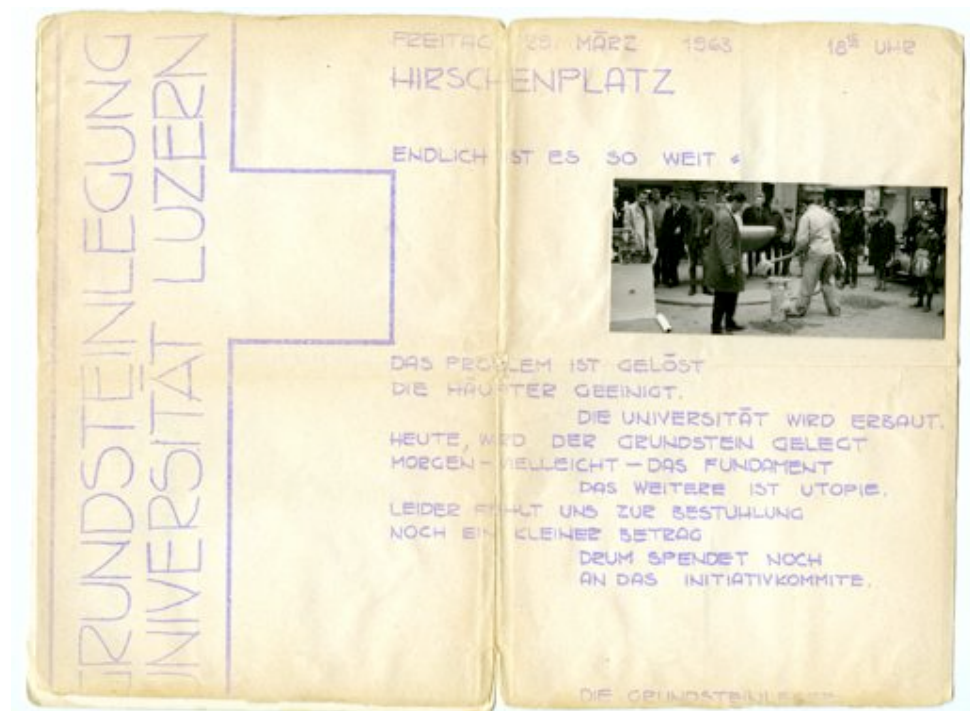 GRUNDSTEINLEGUNG
UNIVERSITÄT LUZERN
FREITAG 29. MÄRZ 1963 18¹⁵ UHR
HIRSCHENPLATZ
ENDLICH IST ES SO WEIT :
DAS PROBLEM IST GELÖST
DIE HÄUPTER GEEINIGT.
DIE UNIVERSITÄT WIRD ERBAUT.
HEUTE, WIRD DER GRUNDSTEIN GELEGT
MORGEN – VIELLEICHT – DAS FUNDAMENT
DAS WEITERE IST UTOPIE.
LEIDER FEHLT UNS ZUR BESTUHLUNG
NOCH EIN KLEINER BETRAG
DRUM SPENDET NOCH
AN DAS INITIATIVKOMMITE.
DIE GRUNDSTEINLEGER